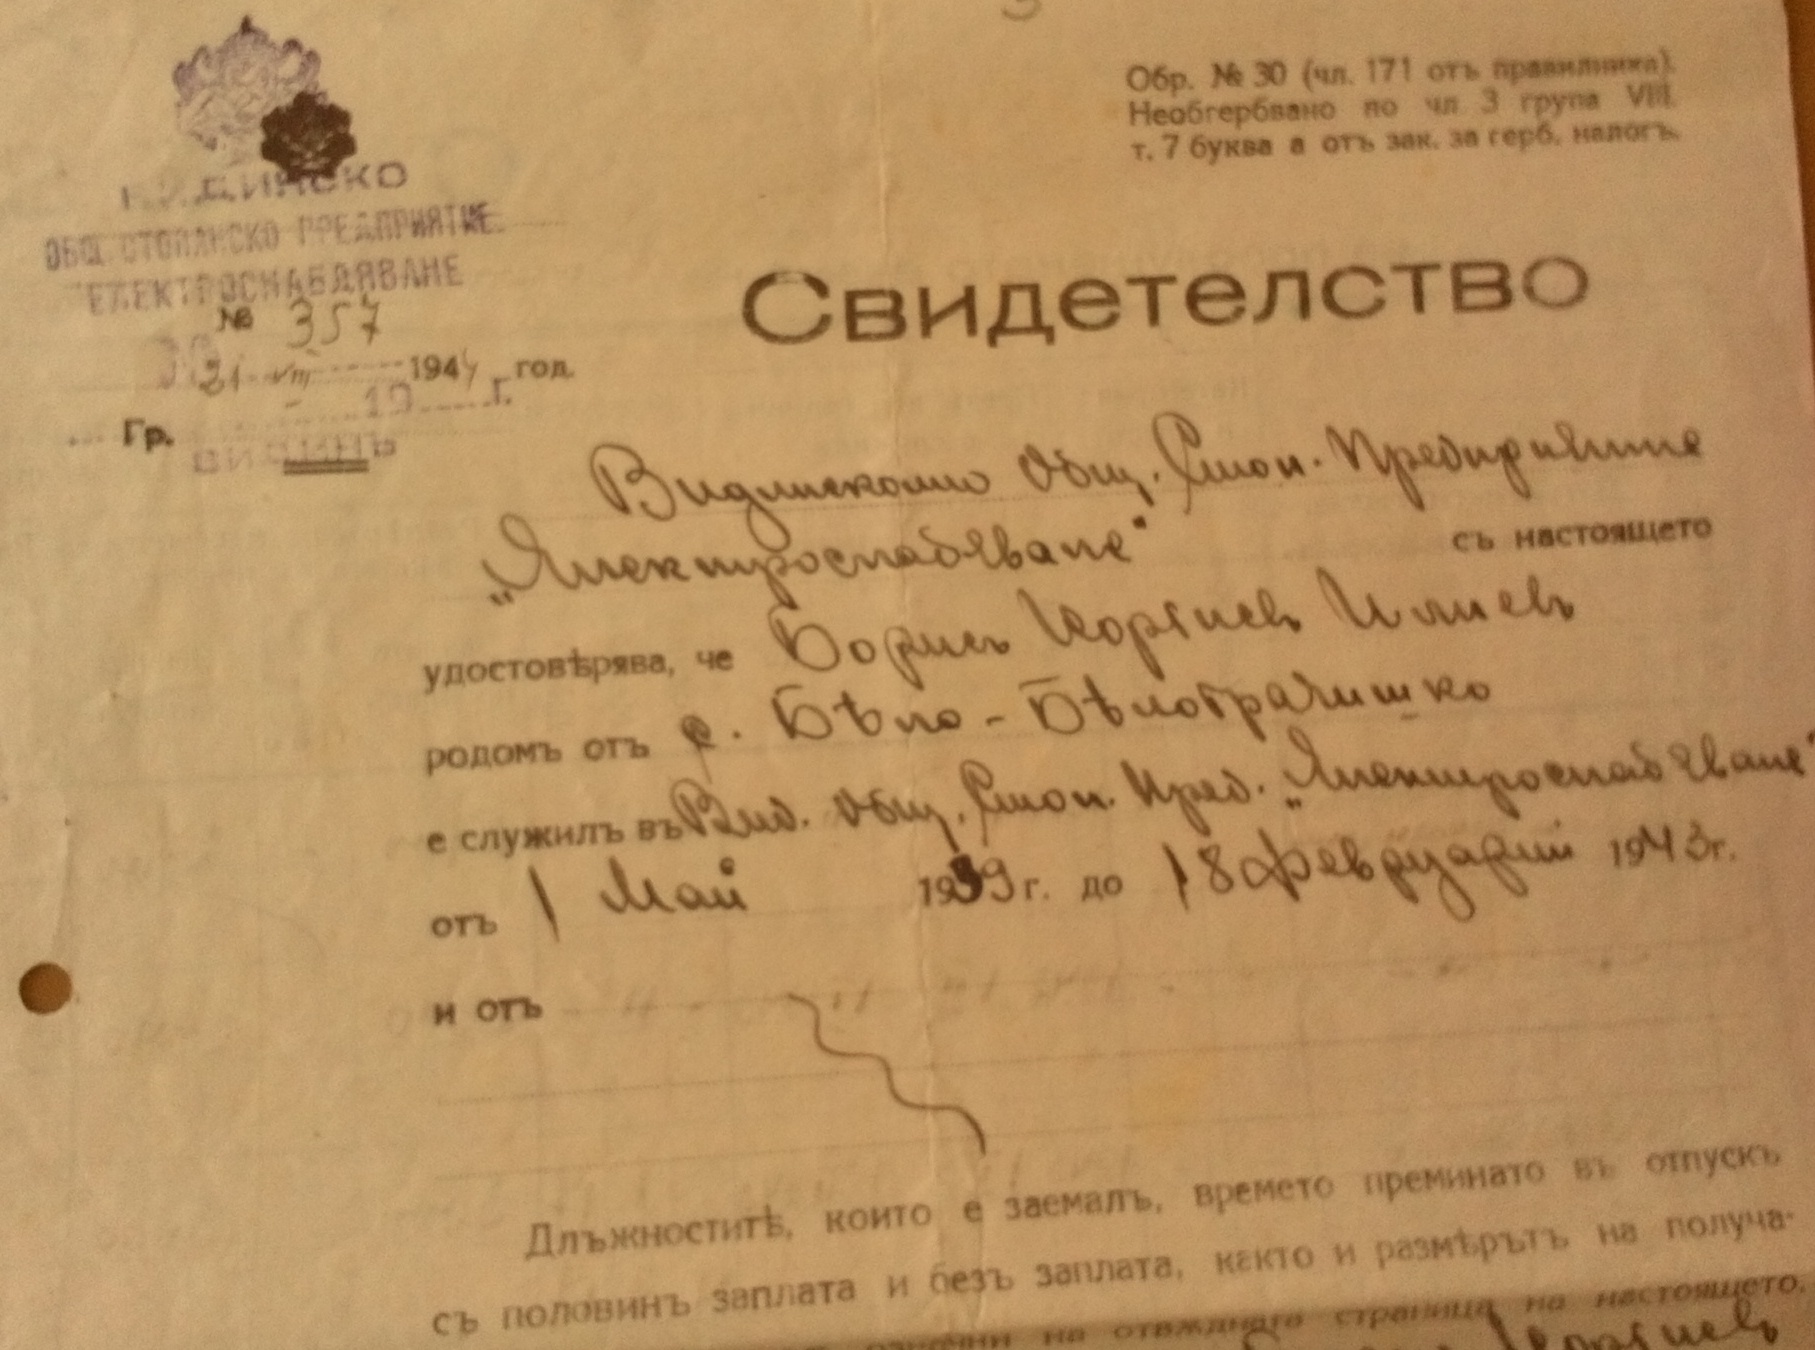 Обр. № 30 (чл. 171 отъ правилника).
Необгербвано по чл. 3 група VIII.
т. 7 буква а отъ зак. за герб. налогъ.
ОБЩ. СТОПАНСКО ПРЕДПРИЯТИЕ
ЕЛЕКТРОСНАБДЯВАНЕ
№ 357
21 VIII 1944 год.
19 г.
Гр. ВИДИНЪ
Свидетелство
Видинското Общ. Стоп. Предприятие
„Електроснабдяване"
съ настоящето
удостовѣрява, че Борисъ Георгиевъ Илиевъ
родомъ отъ с. Бѣло - Бѣлоградчишко
е служилъ въ Вид. Общ. Стоп. Пред. „Електроснабдяване"
отъ 1 Май 1939 г. до 18 февруарий 1943 г.
и отъ
Длъжноститѣ, които е заемалъ, времето преминато въ отпускъ
съ половинъ заплата и безъ заплата, както и размѣрътъ на получа-
на отвждната страница на настоящето.
Георгиевъ